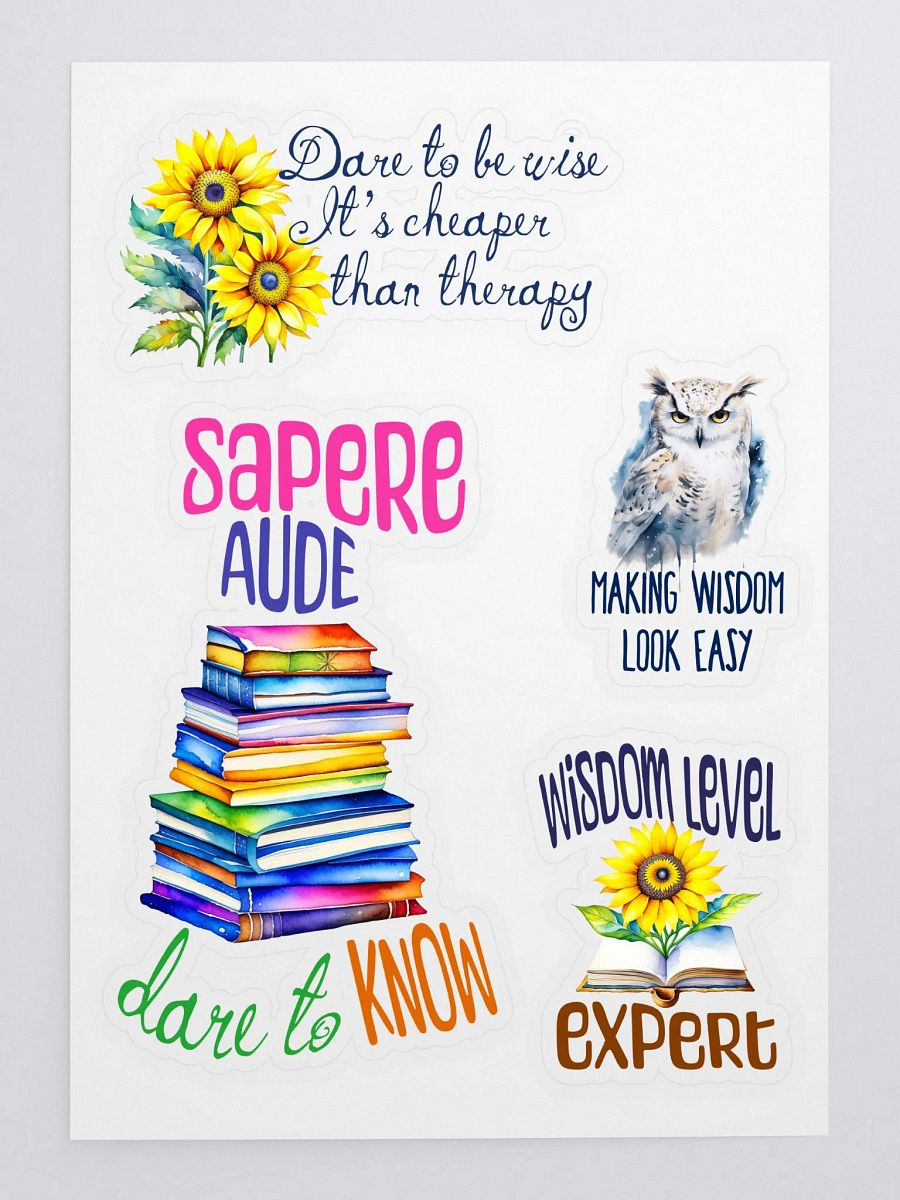 Dare to be wise
It's cheaper
than therapy
SAPERE
AUDE
dare to KNOW
MAKING WISDOM
LOOK EASY
WISDOM LEVEL
EXPERT